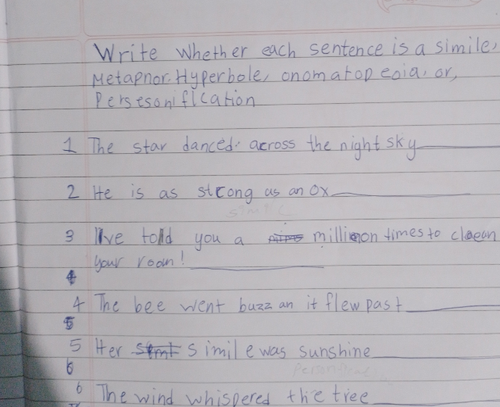 Write whether each sentence is a simile,
Metapnor. Hyperbole, onomatopoeia, or,
Persesonification
1 The star danced across the night sky
2 He is as strong as an ox
3 I've told you a million times to clean
your room!
4 The bee went buzz an it flew past
5 Her simile was sunshine
6
6 The wind whispered the tree